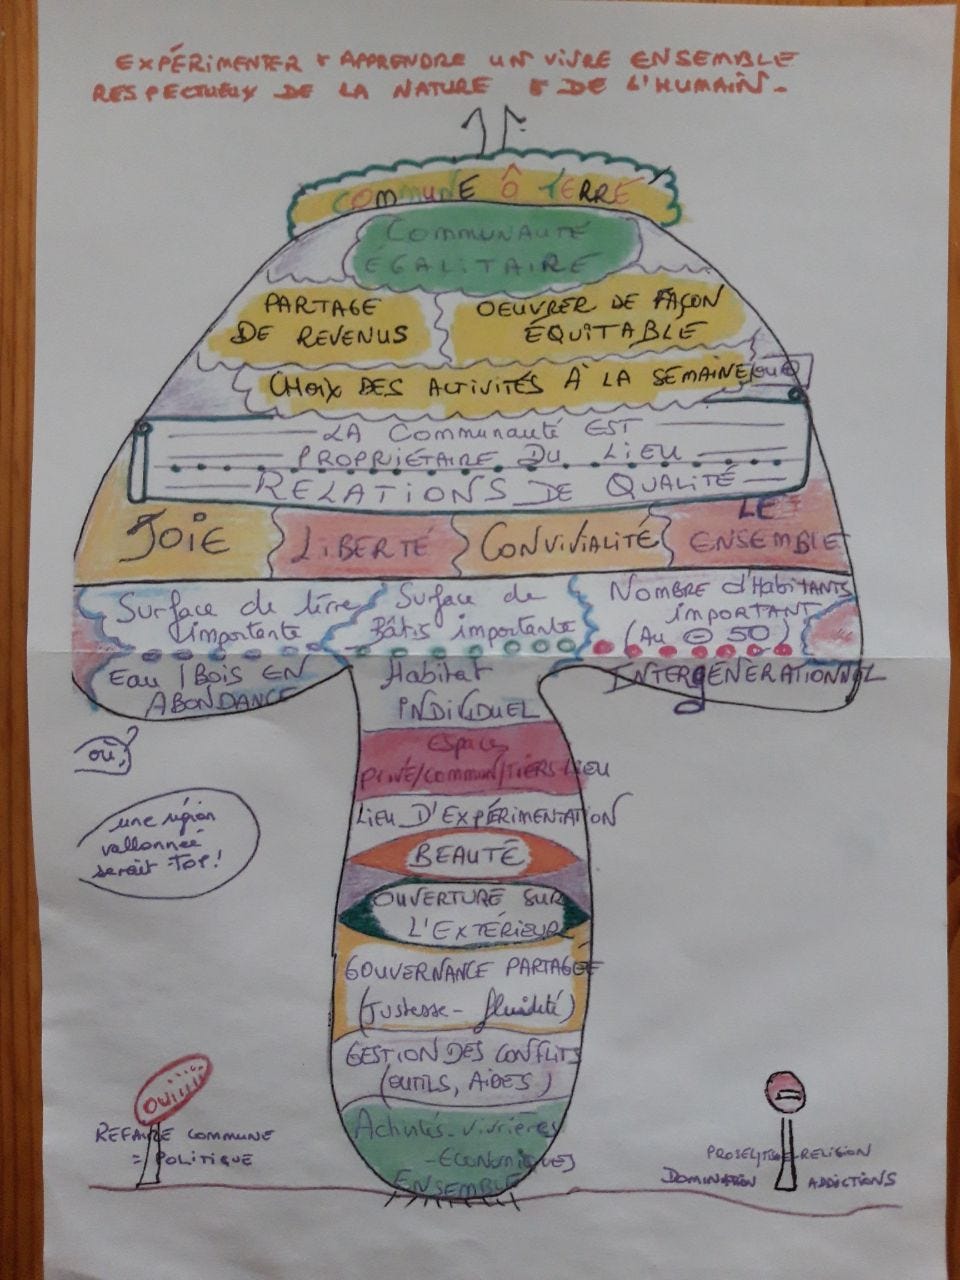 EXPÉRIMENTER & APPRENDRE UN VIVRE ENSEMBLE
RESPECTUEUX DE LA NATURE & DE L'HUMAIN.
COMMUNE Ô TERRE
COMMUNAUTÉ
ÉGALITAIRE
PARTAGE
DE REVENUS
OEUVRER DE FAÇON
ÉQUITABLE
CHOIX DES ACTIVITÉS À LA SEMAINE
LA COMMUNAUTÉ EST
PROPRIÉTAIRE DU LIEU
RELATIONS DE QUALITÉ
JOIE
LIBERTÉ
CONVIVIALITÉ
LE
ENSEMBLE
Surface de terre
importante
Surface de
Bâtis importante
NOMBRE d'HABITANTS
IMPORTANT
(Au ⊖ 50)
EAU / BOIS EN
ABONDANCE
Habitat
INDIVIDUEL
INTERGÉNÉRATIONNEL
Espaces
PRIVÉ/COMMUN/TIERS-LIEU
LIEU D'EXPÉRIMENTATION
BEAUTÉ
OUVERTURE SUR
L'EXTÉRIEUR
GOUVERNANCE PARTAGÉE
(Justesse - fluidité)
GESTION DES CONFLITS
(OUTILS, AIDES)
Activités - vivrières
- Économiques
ENSEMBLE
où?
une région
vallonnée
serait TOP!
OUIIII
REFAIRE COMMUNE
= POLITIQUE
RELIGION
DOMINATION ADDICTIONS